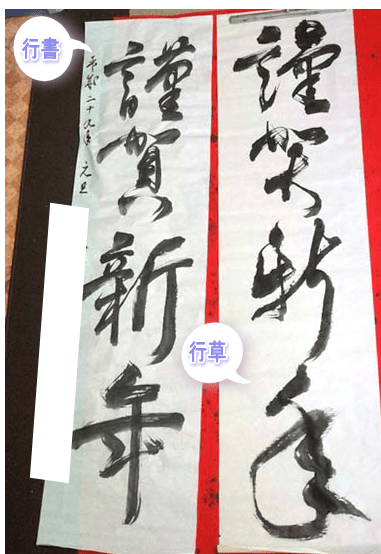 謹賀新年
行草
謹賀新年
平成二十九年 元旦
行書